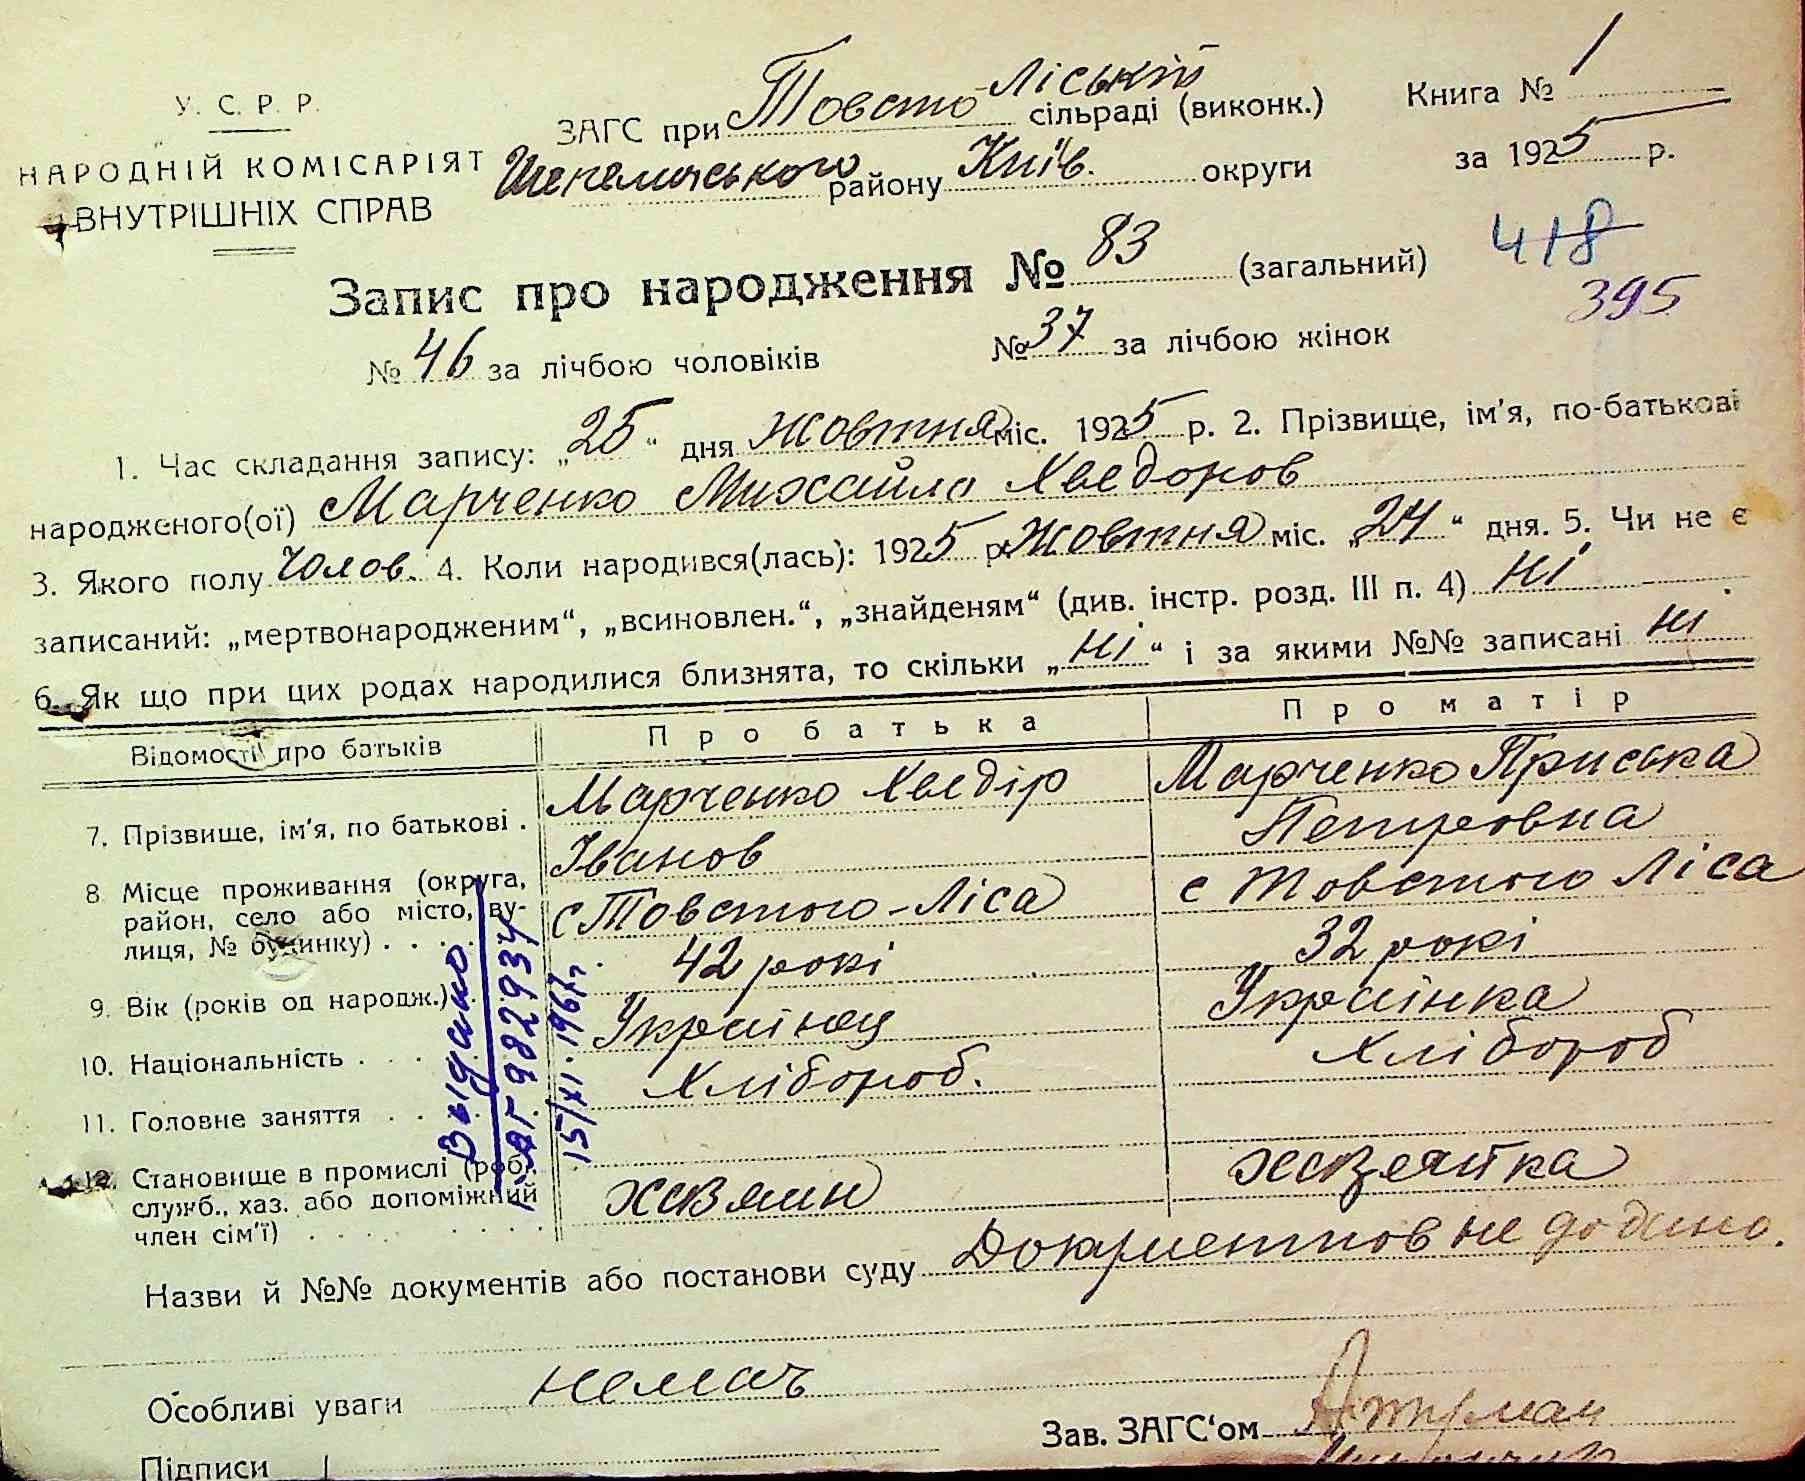 У. С. Р. Р.
НАРОДНІЙ КОМІСАРІЯТ
ВНУТРІШНІХ СПРАВ
ЗАГС при Товсто-Ліській сільраді (виконк.)
Шепелицького району Київ. округи
Книга № 1
за 1925 р.
418
395
Запис про народження № 83 (загальний)
№ 46 за лічбою чоловіків № 37 за лічбою жінок
1. Час складання запису: „25“ дня жовтня міс. 1925 р. 2. Прізвище, ім'я, по-батькові
народженого(ої) Марченко Михайло Хведоров
3. Якого полу Чолов. 4. Коли народився(лась): 1925 р. Жовтня міс. „24“ дня. 5. Чи не є
записаний: „мертвонародженим“, „всиновлен.“, „знайденям“ (див. інстр. розд. III п. 4) ні
6. Як що при цих родах народилися близнята, то скільки „ні“ і за якими №№ записані ні
Відомості про батьків Про батька Про матір
7. Прізвище, ім'я, по батькові . Марченко Хведір Іванов Марченко Приська Петровна
8 Місце проживання (округа,
район, село або місто, ву-
лиця, № будинку) . . . . с Товстого-Ліса с Товстого Ліса
9. Вік (років од народж.) . 42 рокі 32 рокі
10. Національність . . . . Українец Українка
11. Головне заняття . . . . Хлібороб. Хлібороб
12. Становище в промислі (роб.,
служб., хаз. або допоміжний
член сім'ї) . . . . . . . хазяин хазяйка
Выдано
9829937
15/XI.1967г.
Назви й №№ документів або постанови суду Документов не додано.
Особливі уваги немає
Зав. ЗАГС'ом
Підписи